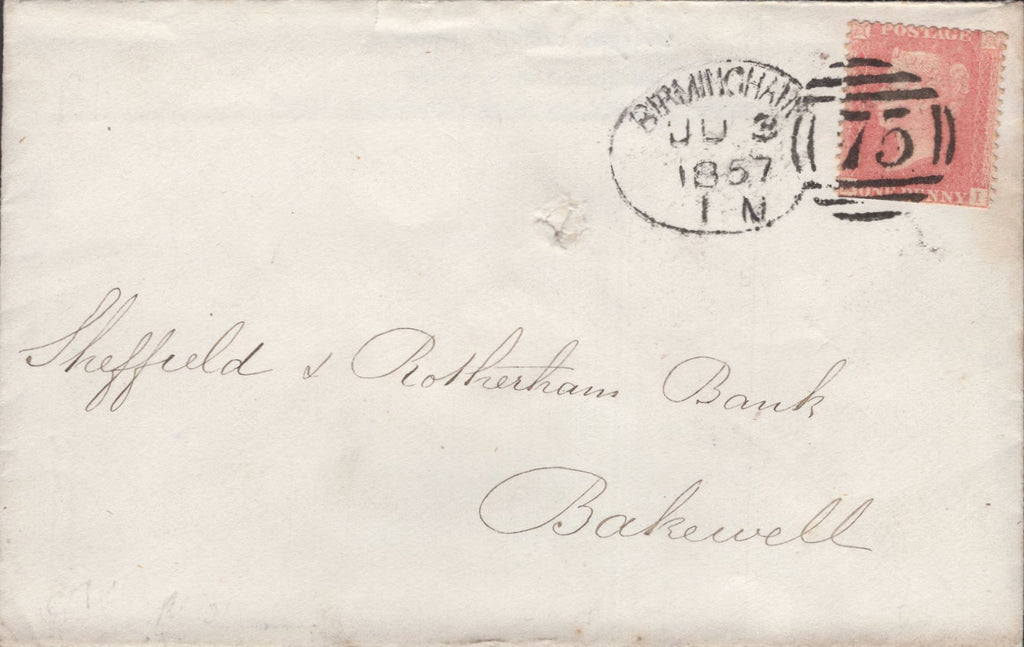 POSTAGE
BIRMINGHAM
JU 3
1857
1 N
75
ONE PENNY
I
Sheffield & Rotherham Bank
Bakewell